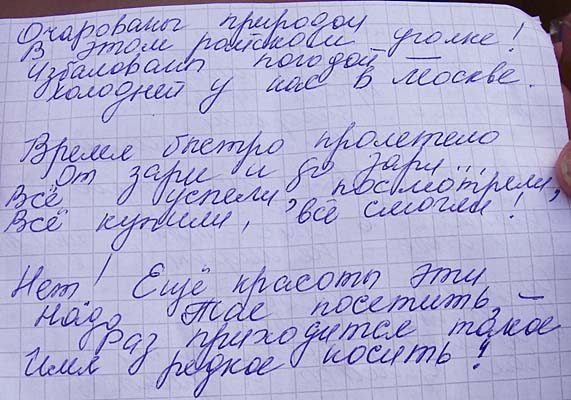 Очарованы природой
В этом райском уголке!
Избалованы погодой –
Холодней у нас в Москве.
Время быстро пролетело
От зари и до зари...
Всё успели, посмотрели,
Всё купили, всё смогли!
Нет! Ещё красоты эти
Надо Тае посетить –
Раз приходится такое
Имя редкое носить!